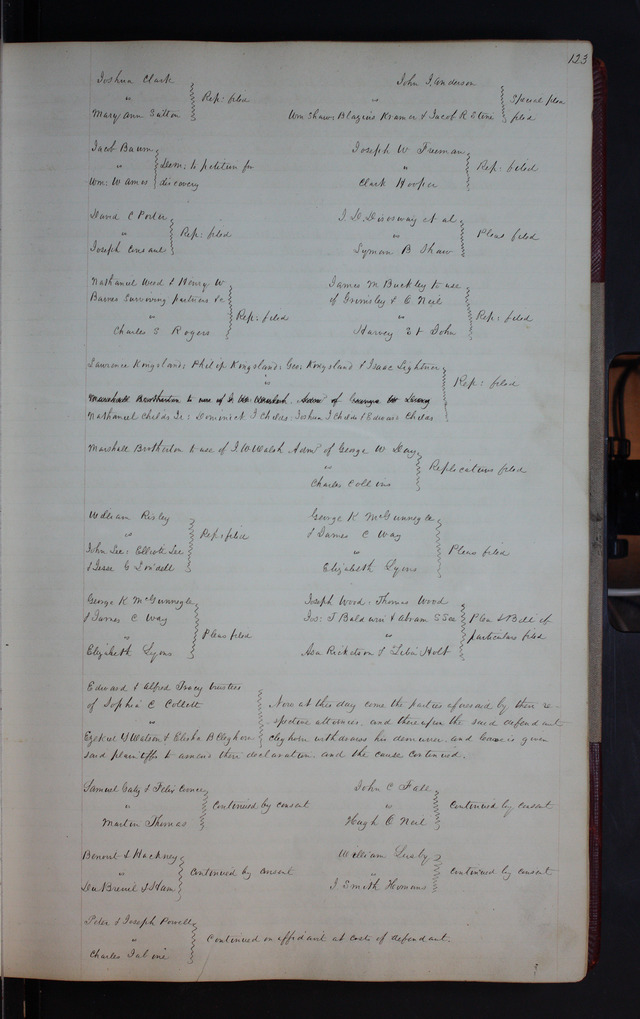 123
Joshua Clark
"
Mary Ann Sutton
Rep: filed
John J Anderson
"
Wm Shaw: Blazius Kramer & Jacob R Stine
Special plea
filed
Jacob Baum
"
Wm: W Ames
Dem: to petition for
discovery
Joseph W Freeman
"
Clark Hooper
Rep: filed
David C Porter
"
Joseph Conzant
Rep: filed
et al
"
Lyman B Shaw
Pleas filed
Nathaniel Weed & Henry W
Barnes Surviving partners &c
"
Charles S Rogers
Rep: filed
James M Buckley to use
of Grimsley & O Neil
"
Harvey & John
Rep: filed
Lawrence Kingsland: Philip Kingsland: Geo: Kingsland & Isaac Lightner
"
Marshall Brotherton to use of Admr of George W
Nathaniel Childs Jr: Dominick J Childs: Joshua J Childs & Edward Childs
Rep: filed
Marshall Brotherton to use of J. W Walsh Admr of George W Day
"
Charles Collins
Replications filed
William Risley
"
John Lee: Elliott Lee
& Jesse G Lindell
Rep: filed
George K McGunnegle
& James C Way
"
Elizabeth Lyons
Pleas filed
George K McGunnegle
& James C Way
"
Elizabeth Lyons
Pleas filed
Joseph Wood: Thomas Wood
Jos: T Baldwin & Abram S See
"
Asa Ricketson & Holt
Plea & Bill of
particulars filed
Edward & Alfred Tracy trustees
of Sophia C Collett
"
Ezekiel Y Watson & Elisha B Cleghorn
Now at this day come the parties aforesaid by their re-
-spective attornies, and thereupon the said defendant
Cleghorn withdraws his demurrer, and leave is given
said plaintiffs to amend their declaration. and the cause continued.
Samuel Gaty & Felix Coonce
"
Martin Thomas
Continued by consent
John C Fall
"
Hugh O Neil
Continued by consent
Benoist & Hackney
"
DuBreuil & Ham
Continued by consent
William Lusby
"
J Smith Homans
Continued by consent
Peter & Joseph Powell
"
Charles Jabine
Continued on affidavit at costs of defendant.